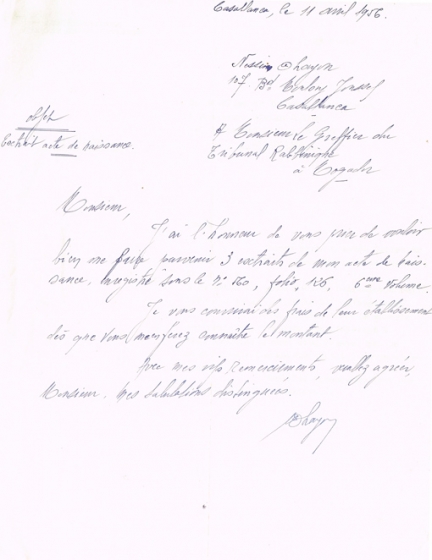 Casablanca, le 11 avril 1956.
Nissim Ohayon
127 Bd Moulay Youssef
Casablanca
objet
Extrait acte de naissance.
A Monsieur le Greffier du
Tribunal Rabbinique
à Mogador
Monsieur,
J'ai l'honneur de vous prier de vouloir
bien me faire parvenir 3 extraits de mon acte de nais-
sance, enregistré sous le n° 760, folio, 126, 6ème volume.
Je vous couvrirai des frais de leur établissement
dès que vous m'en ferez connaître le montant.
Avec mes vifs remerciements, veuillez agréer,
Monsieur, mes salutations distinguées.
Ohayon